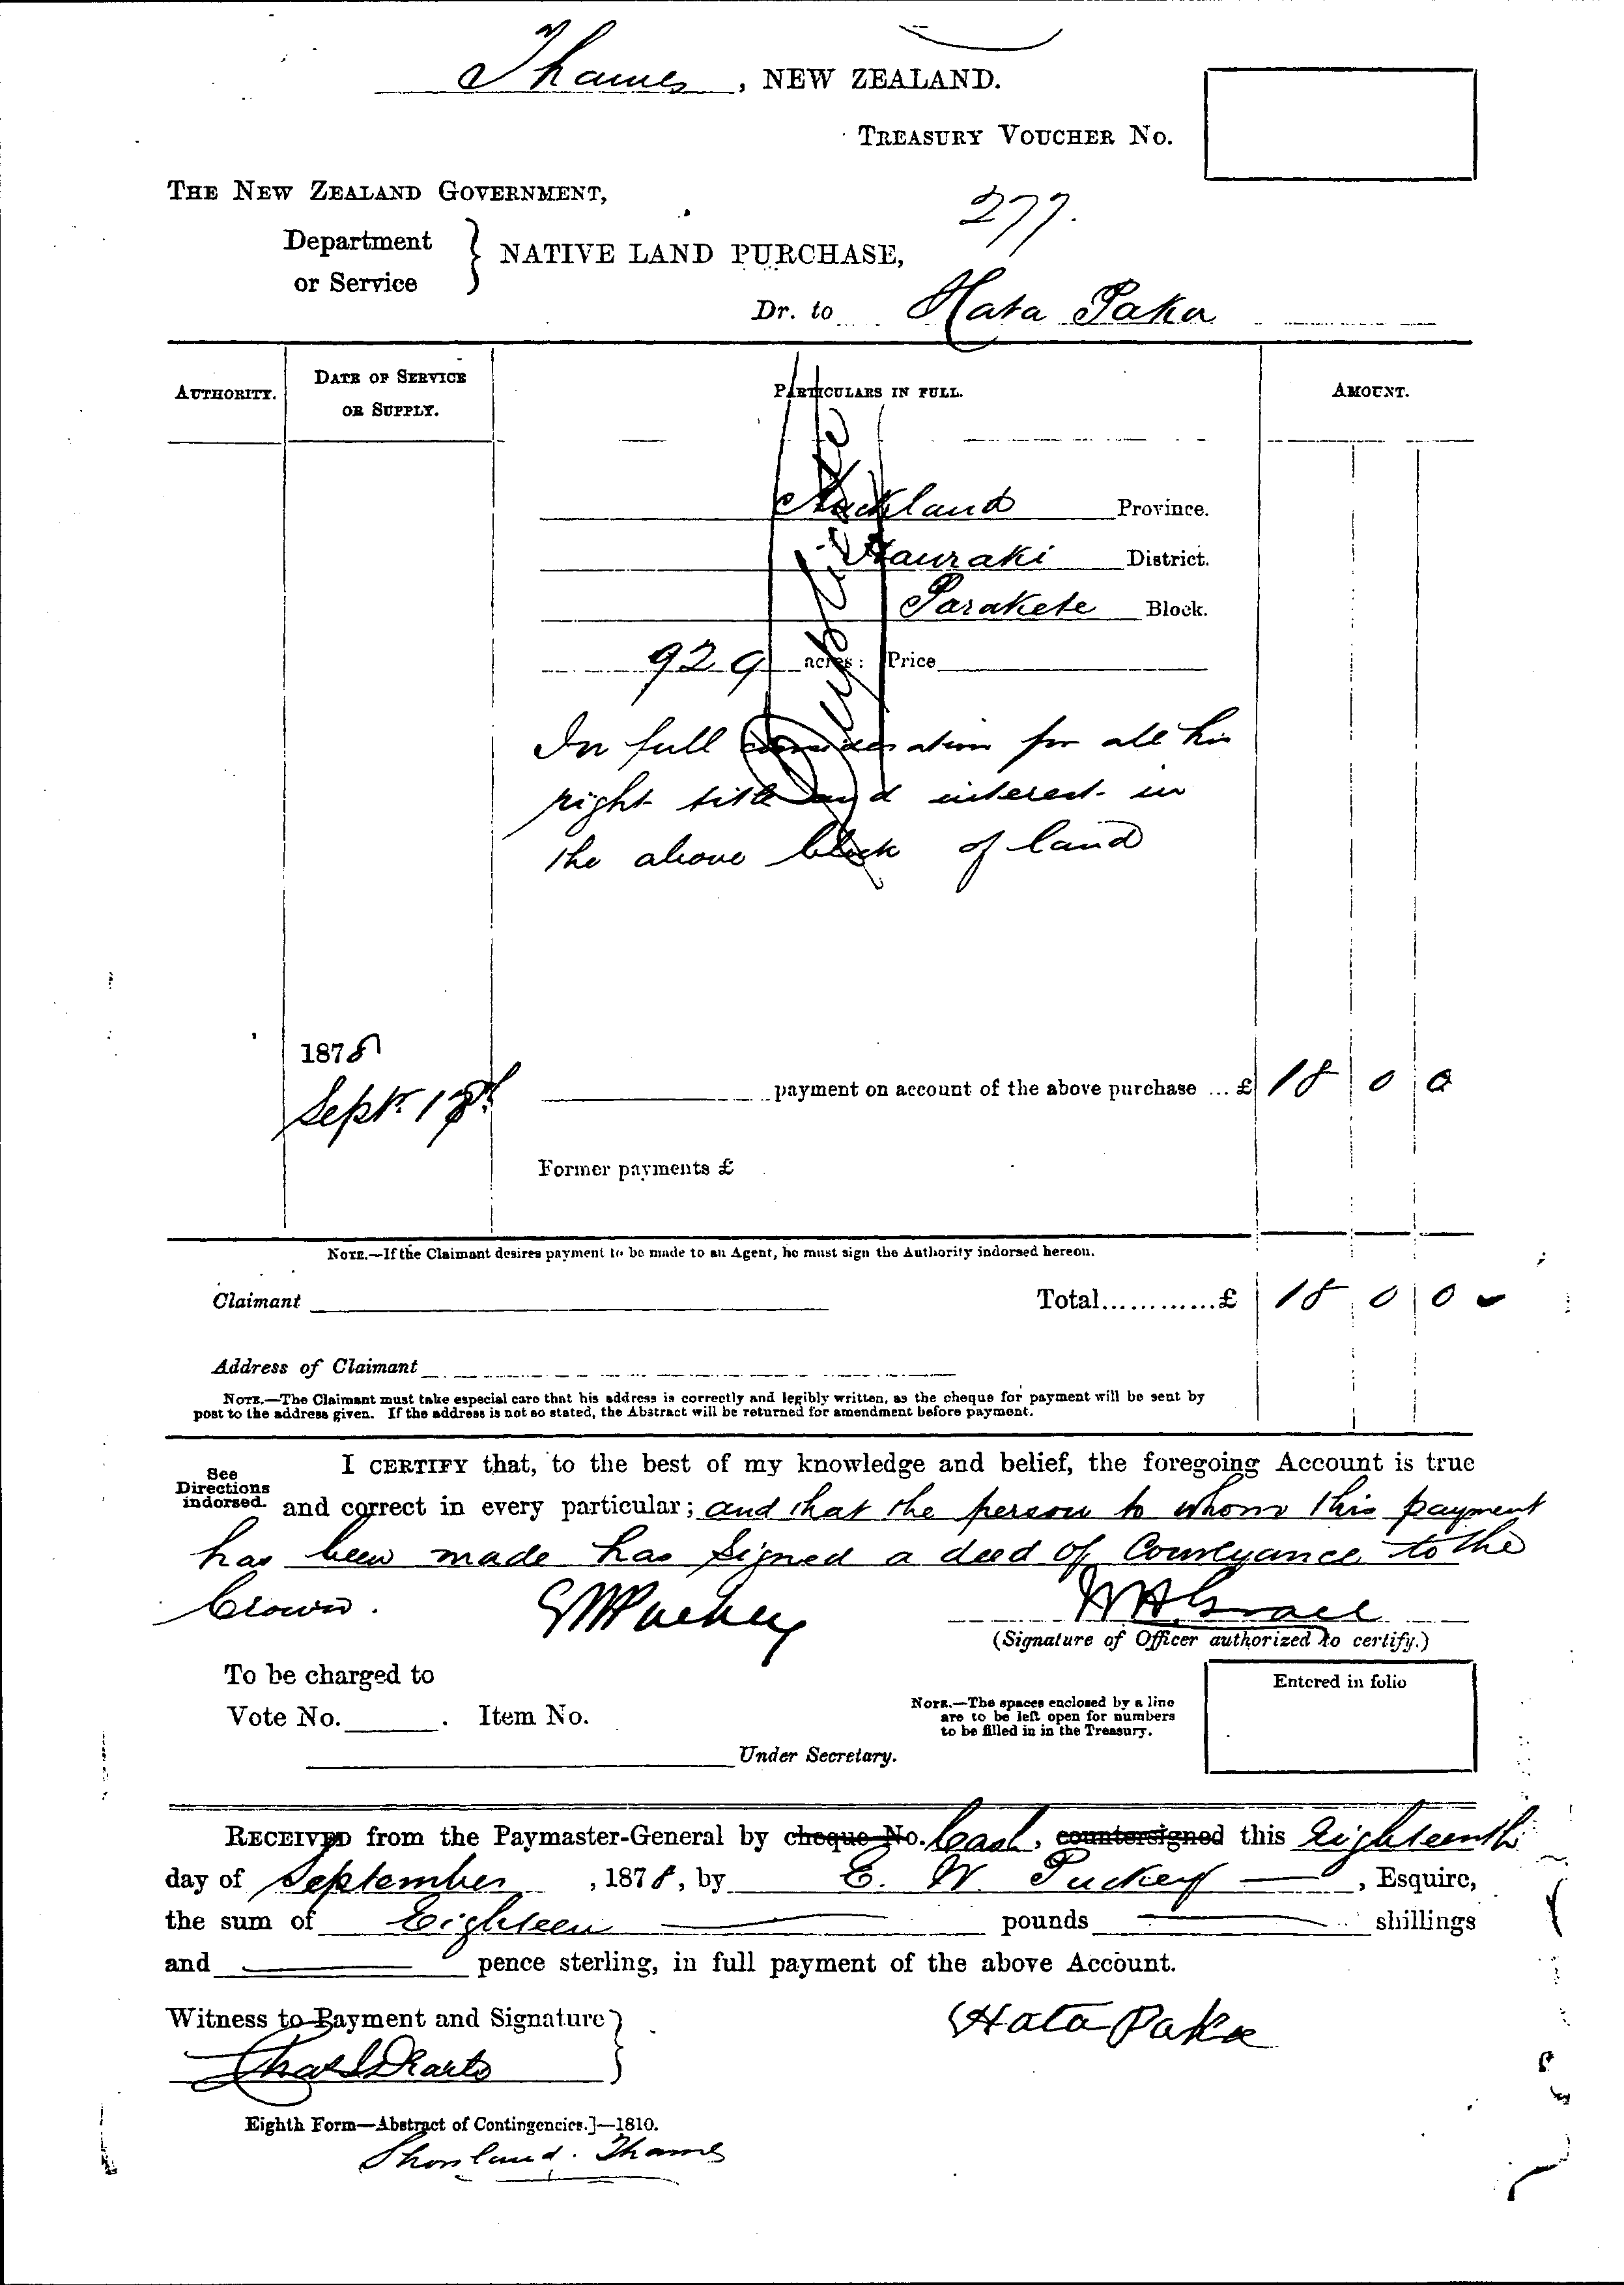 Thames, NEW ZEALAND.
TREASURY VOUCHER No.
THE NEW ZEALAND GOVERNMENT,
277.
Department
or Service
NATIVE LAND PURCHASE,
Dr. to Hata Paka
AUTHORITY.
DATE OF SERVICE
OR SUPPLY.
PARTICULARS IN FULL.
AMOUNT.
Duplicate
Auckland Province.
Hauraki District.
Parakete Block.
929 acres: Price
In full consideration for all his
right title and interest in
the above block of land
1878
Sept. 18th
payment on account of the above purchase ... £ 18 0 0
Former payments £
NOTE.—If the Claimant desires payment to be made to an Agent, he must sign the Authority indorsed hereon.
Claimant
Total............£ 18 0 0
Address of Claimant
NOTE.—The Claimant must take especial care that his address is correctly and legibly written, as the cheque for payment will be sent by
post to the address given. If the address is not so stated, the Abstract will be returned for amendment before payment.
See
Directions
indorsed.
I CERTIFY that, to the best of my knowledge and belief, the foregoing Account is true
and correct in every particular; and that the person to whom this payment
has been made has signed a deed of Conveyance to the
Crown.
EWPuckey
(Signature of Officer authorized to certify.)
To be charged to
Vote No. . Item No.
NOTE.—The spaces enclosed by a line
are to be left open for numbers
to be filled in in the Treasury.
Entered in folio
Under Secretary.
RECEIVED from the Paymaster-General by cheque No. Cash, countersigned this Eighteenth
day of September, 1878, by E. W. Puckey, Esquire,
the sum of Eighteen pounds shillings
and pence sterling, in full payment of the above Account.
Witness to Payment and Signature
Hata Paka
Eighth Form—Abstract of Contingencies.]—1810.
Shortland. Thames